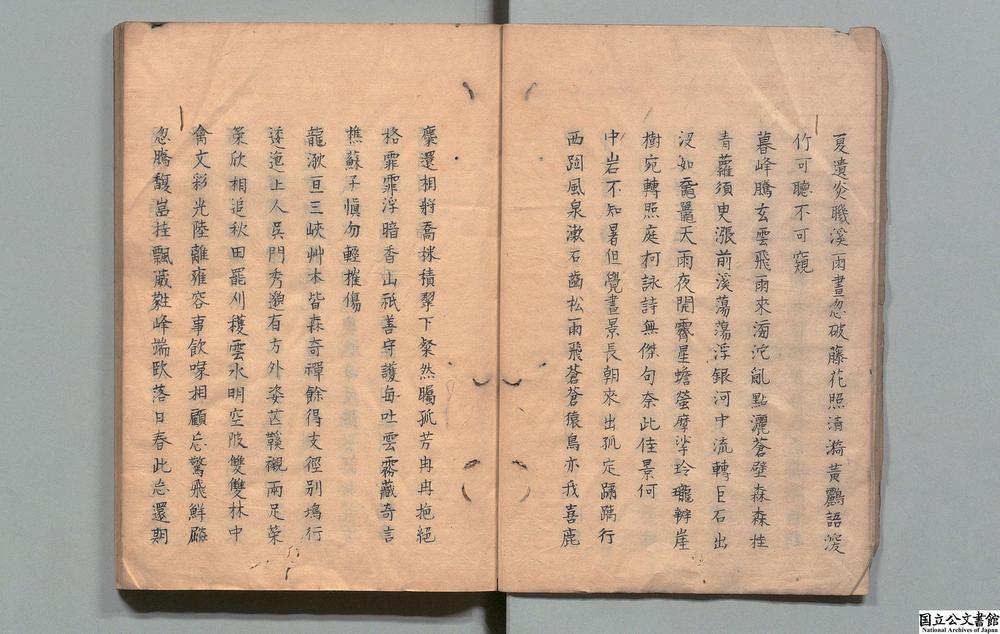 夏遺炎職溪雨晝忽破藤花照清漪黃鸝語叢
竹可聽不可窺
暮峰騰玄雲飛雨來滂沱亂點灑蒼壁森森桂
青蘿須臾漲前溪蕩蕩浮銀河中流轉巨石出
沒如黿鼉天雨夜開霽星蟾螢摩挲玲瓏辨崖
樹宛轉照庭柯詠詩無傑句奈此佳景何
中岩不知暑但覺晝景長朝來出孤定踽踽行
西岡風泉漱石齒松雨飛蒼蒼猿鳥亦我喜鹿
麋還相將喬林積翠下粲然矚孤芳冉冉抱絕
格霏霏浮暗香山祇善守護每吐雲霧藏奇言
樵蘇子慎勿輕摧傷
龍湫亘三峽艸木皆森奇禪餘得支徑別塢行
逶迤上人吳門秀邈有方外姿芒鞵襯兩足菜
策欣相追秋田罷刈穫雲水明空陂雙雙林中
禽文彩光陸離雍容事飲啄相顧忘驚飛鮮飈
忽騰馥嵓桂飄葳蕤峰端歐落日舂此忘還期
国立公文書館
National Archives of Japan